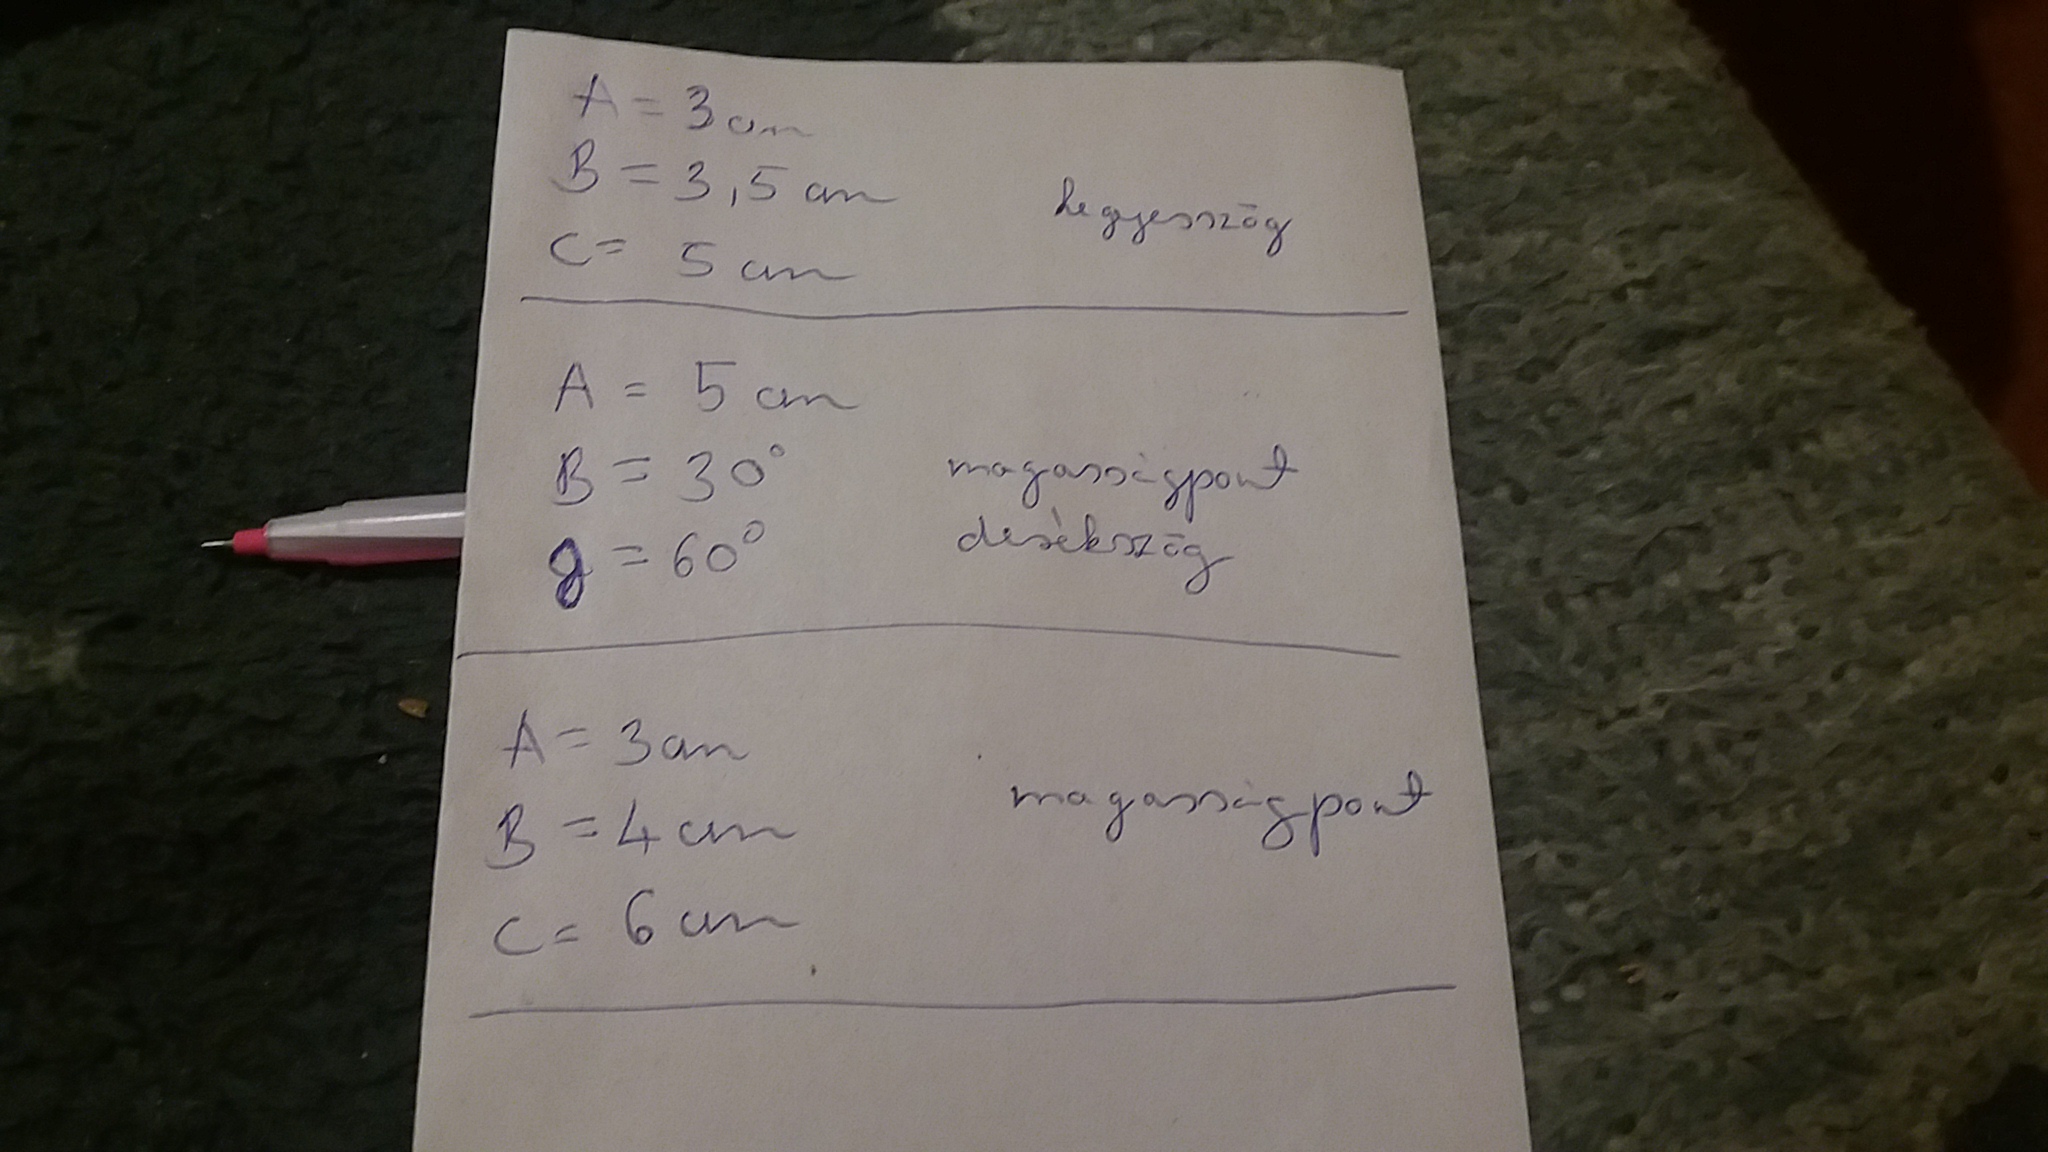 A = 3 cm
B = 3,5 cm
hegyesszög
C = 5 cm
A = 5 cm
B = 30°
magasságpont
g = 60°
derékszög
A = 3 cm
B = 4 cm
magasságpont
C = 6 cm